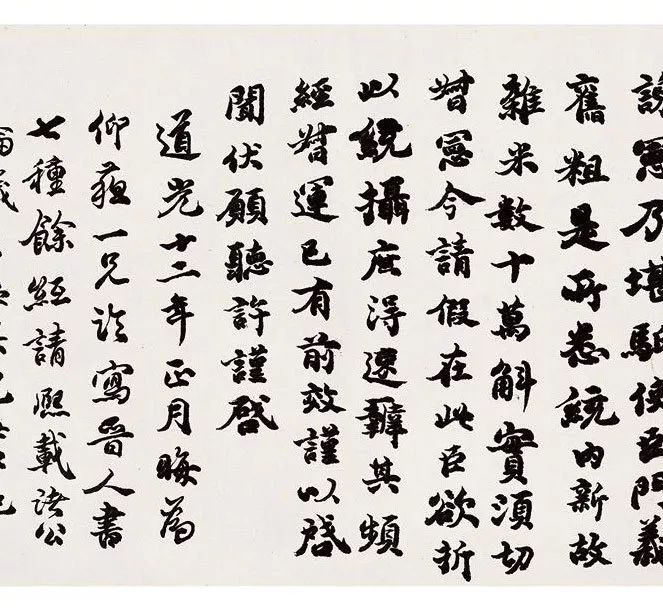 憲乃堪驅使臣門義
舊粗是所悉統内新故
雜米數十萬斛實須切
督憲今請假在此臣欲折
以統攝庶得速辦其頻
經督運已有前效謹以啓
聞伏願聽許謹啓
道光十二年正月晦為
仰蘓一兄寫晉人書
七種餘紙請熙載諸公